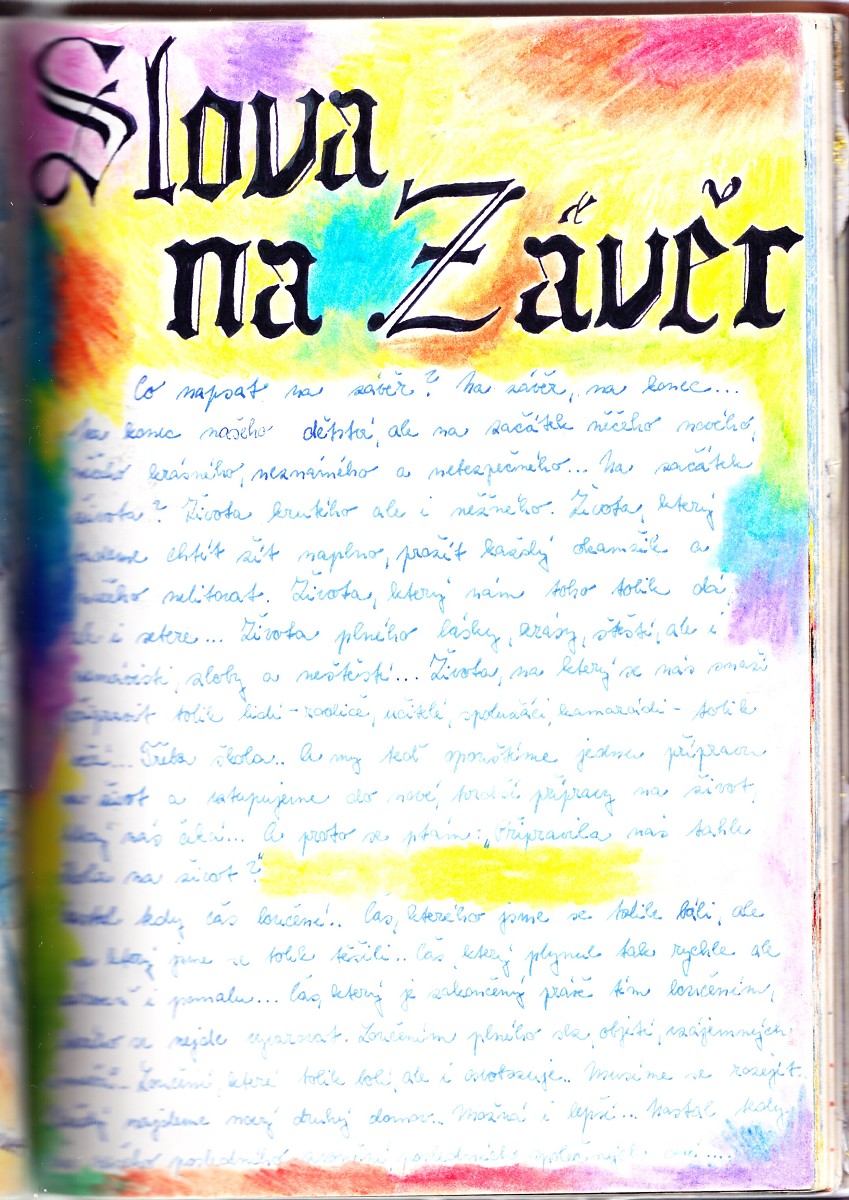 Slova
na Závěr
Co napsat na závěr? Na závěr, na konec...
Na konec našeho dětství, ale na začátek něčeho nového,
něčeho krásného, neznámého a nebezpečného... Na začátek
života? Života krutého ale i něžného. Života, který
budeme chtít žít naplno, prožít každý okamžik a
ničeho nelitovat. Života, který nám toho tolik dá,
ale i sebere... Života plného lásky, krásy, štěstí, ale i
nenávisti, zloby a neštěstí... Života, na který se nás snaží
připravit tolik lidí - rodiče, učitelé, spolužáci, kamarádi - tolik
věcí... Třeba škola.. A my teď opouštíme jednu přípravu
na život a vstupujeme do nové, tvrdší přípravy na život,
který nás čeká... A proto se ptám: „Připravila nás tahle
škola na život?"
Nastal tedy čas loučení.. Čas, kterého jsme se tolik báli, ale
na který jsme se tolik těšili.. Čas, který plynul tak rychle ale
zároveň i pomalu... Čas, který je zakončený práve tím loučením,
kterého se nejde vyvarovat. Loučením plného slz, objetí, vzájemných
Loučení, které tolik bolí, ale i osvobozuje.. Musíme se rozejít.
najdeme nový druhý domov.. Možná i lepší... Nastal tedy
našeho posledního zvonění, posledního společných